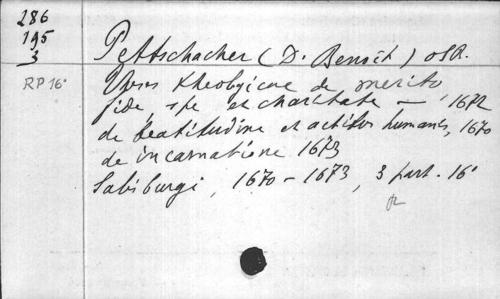 286
195
3
RP 16°
Pettschacher (D. Benoît) OSB.
theologicae de merito
fide, spe et charitate — 1672
de beatitudine et actibus humanis, 1670
de incarnatione 1673
Salisburgi, 1670 - 1673, 3 part. 16°